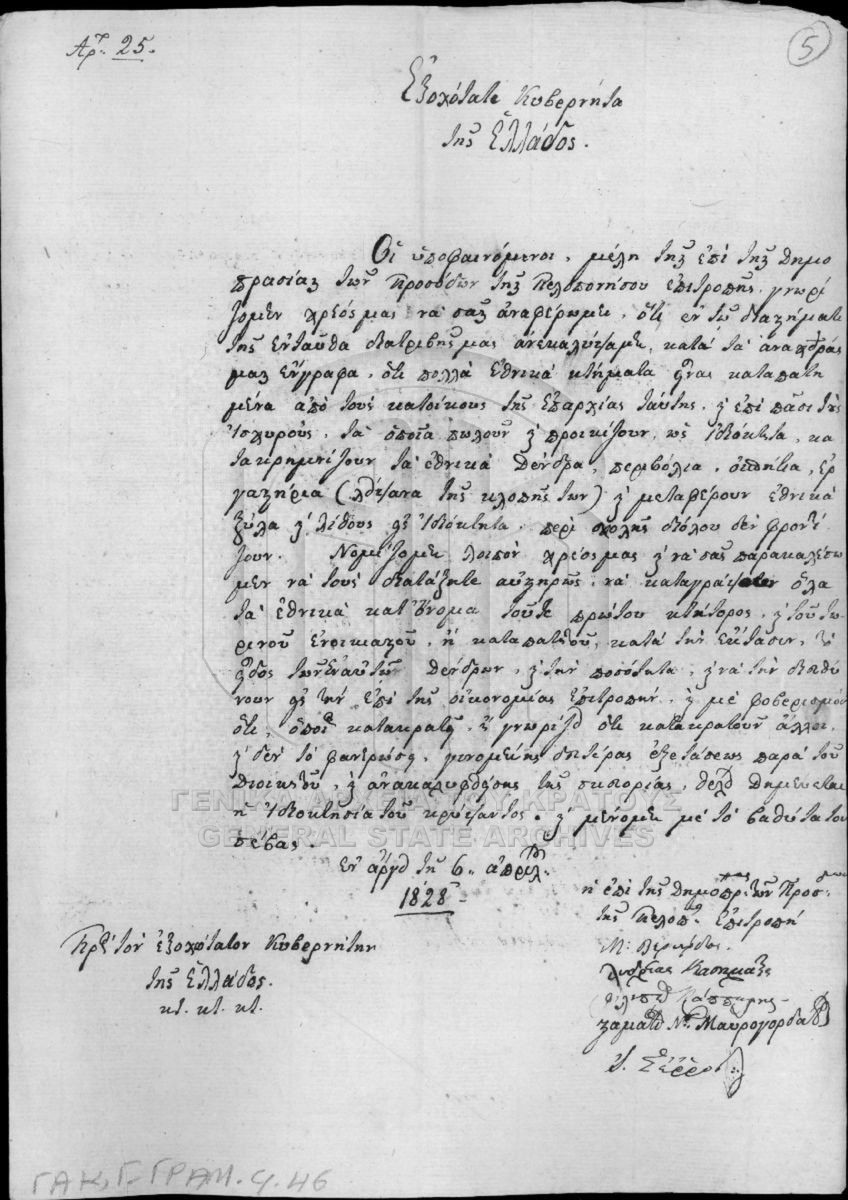 Αρ: 25.
5
Ἐξοχότατε Κυβερνήτα
τῆς Ἑλλάδος.
Οἱ ὑποφαινόμενοι, μέλη τῆς ἐπὶ τῆς δημο
πρασίας τῶν Προσόδων τῆς Πελοπονήσου ἐπιτροπῆς, γνωρί
ζομεν χρέος μας νὰ σᾶς ἀναφέρωμεν, ὅτι ἐν τῷ διαστήματι
τῆς ἐνταῦθα διατριβῆς μας ἀνεκαλύψαμεν, κατὰ τὰ
μας ἔγγραφα, ὅτι πολλὰ ἐθνικὰ κτήματα εἶναι καταπατη
μένα ἀπὸ τοὺς κατοίκους τῆς ἐπαρχίας ταύτης, καὶ ἐπὶ πᾶσι τοὺς
ἰσχυρούς, τὰ ὁποῖα πωλοῦν καὶ προικίζουν, ὡς ἰδιόκτητα, κα
τακρημνίζουν τὰ ἐθνικὰ δένδρα, περιβόλια, ὁσπήτια, ἐρ
γαστήρια (λείψανα τῆς κλοπῆς των) καὶ μεταφέρουν ἐθνικὰ
ξύλα καὶ λίθους εἰς ἰδιόκτητα. περὶ σχολῆς διόλου δὲν φροντί
ζουν. Νομίζομεν λοιπὸν χρέος μας καὶ νὰ σᾶς παρακαλέσω
μεν νὰ τοὺς διατάξητε αὐστηρῶς, νὰ καταγράψουν ὅλα
τὰ ἐθνικὰ κατ' ὄνομα τοῦ τε πρώτου κτήτορος, καὶ τοῦ τω
ρινοῦ ἐνοικιαστοῦ, ἢ καταπατητοῦ, κατὰ τὴν ἔκτασιν, τὸ
εἶδος τῶν ἐν αὐτῷ δένδρων, καὶ τὴν ποσότητα, καὶ νὰ τὴν διευθύ
νουν εἰς τὴν ἐπὶ τῆς οἰκονομίας ἐπιτροπήν, καὶ μὲ φοβερισμὸν
ὅτι, ὅποιος κατακρατεῖ, ἢ γνωρίζει ὅτι κατακρατοῦν ἄλλοι,
καὶ δὲν τὸ φανερώσῃ, γινομένης δευτέρας ἐξετάσεως παρὰ τοῦ
Διοικητοῦ, καὶ ἀνακαλυφθείσης τῆς πονηρίας, θέλει δημεύεται
ἡ ἰδιοκτησία τοῦ κρύψαντος. καὶ μένομεν μὲ τὸ βαθύτατον
σέβας.
Ἐν Ἄργει τῇ 6 ἀπριλ:
1828
ἡ ἐπὶ τῆς Δημοπρ: τῶν Προσ:
τῆς Πελοπ: Ἐπιτροπή
Πρὸς τὸν ἐξοχότατον Κυβερνήτην
τῆς Ἑλλάδος.
κτ. κτ. κτ.
Ν: Μαυρογορδάτος
ΓΕΝΙΚΑ ΑΡΧΕΙΑ ΤΟΥ ΚΡΑΤΟΥΣ
GENERAL STATE ARCHIVES
ΓΑΚ, Γ-ΓΡΑΜ. 4. 46